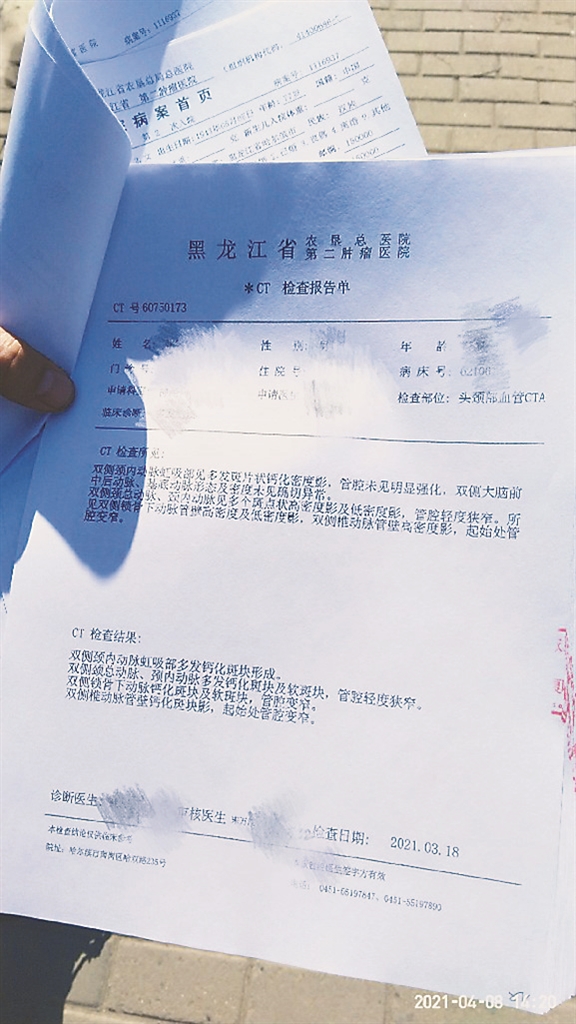 医院 病案号: 1116937
江省农垦总局总医院 (组织机构代码:
江省 第二肿瘤医院 病案号 1116937
病案首页 国籍 中国
第 2 次入院
出生日期 年龄
黑龙江省农垦总医院
第二肿瘤医院
*CT 检查报告单
CT 号 60750173
姓 名 性 别: 年 龄
门 住 院 号 病 床 号:
申请科 申请医 检查部位: 头颈部血管CTA
临床诊断:
CT 检查所见:
双侧颈内动脉虹吸部见多发斑片状钙化密度影, 管腔未见明显强化, 双侧大脑前
中后动脉、基底动脉走行及密度未见确切异常。
双侧颈总动脉、颈内动脉见多个斑点状高密度影及低密度影, 管腔轻度狭窄。所
见双侧锁骨下动脉管壁高密度及低密度影, 双侧椎动脉管壁高密度影, 起始处管
腔变窄。
CT 检查结果:
双侧颈内动脉虹吸部多发钙化斑块形成。
双侧颈总动脉、颈内动脉多发钙化斑块及软斑块, 管腔轻度狭窄。
双侧锁骨下动脉钙化斑块及软斑块, 管腔变窄。
双侧椎动脉管壁钙化斑块影, 起始处管腔变窄。
诊断医生: 审核医生 检查日期: 2021.03.18
本检查结论仅供临床参考 签字方有效
院址: 哈尔滨市南岗区哈双路235号 0451-55197847、0451-55197890
2021-04-08 14:20